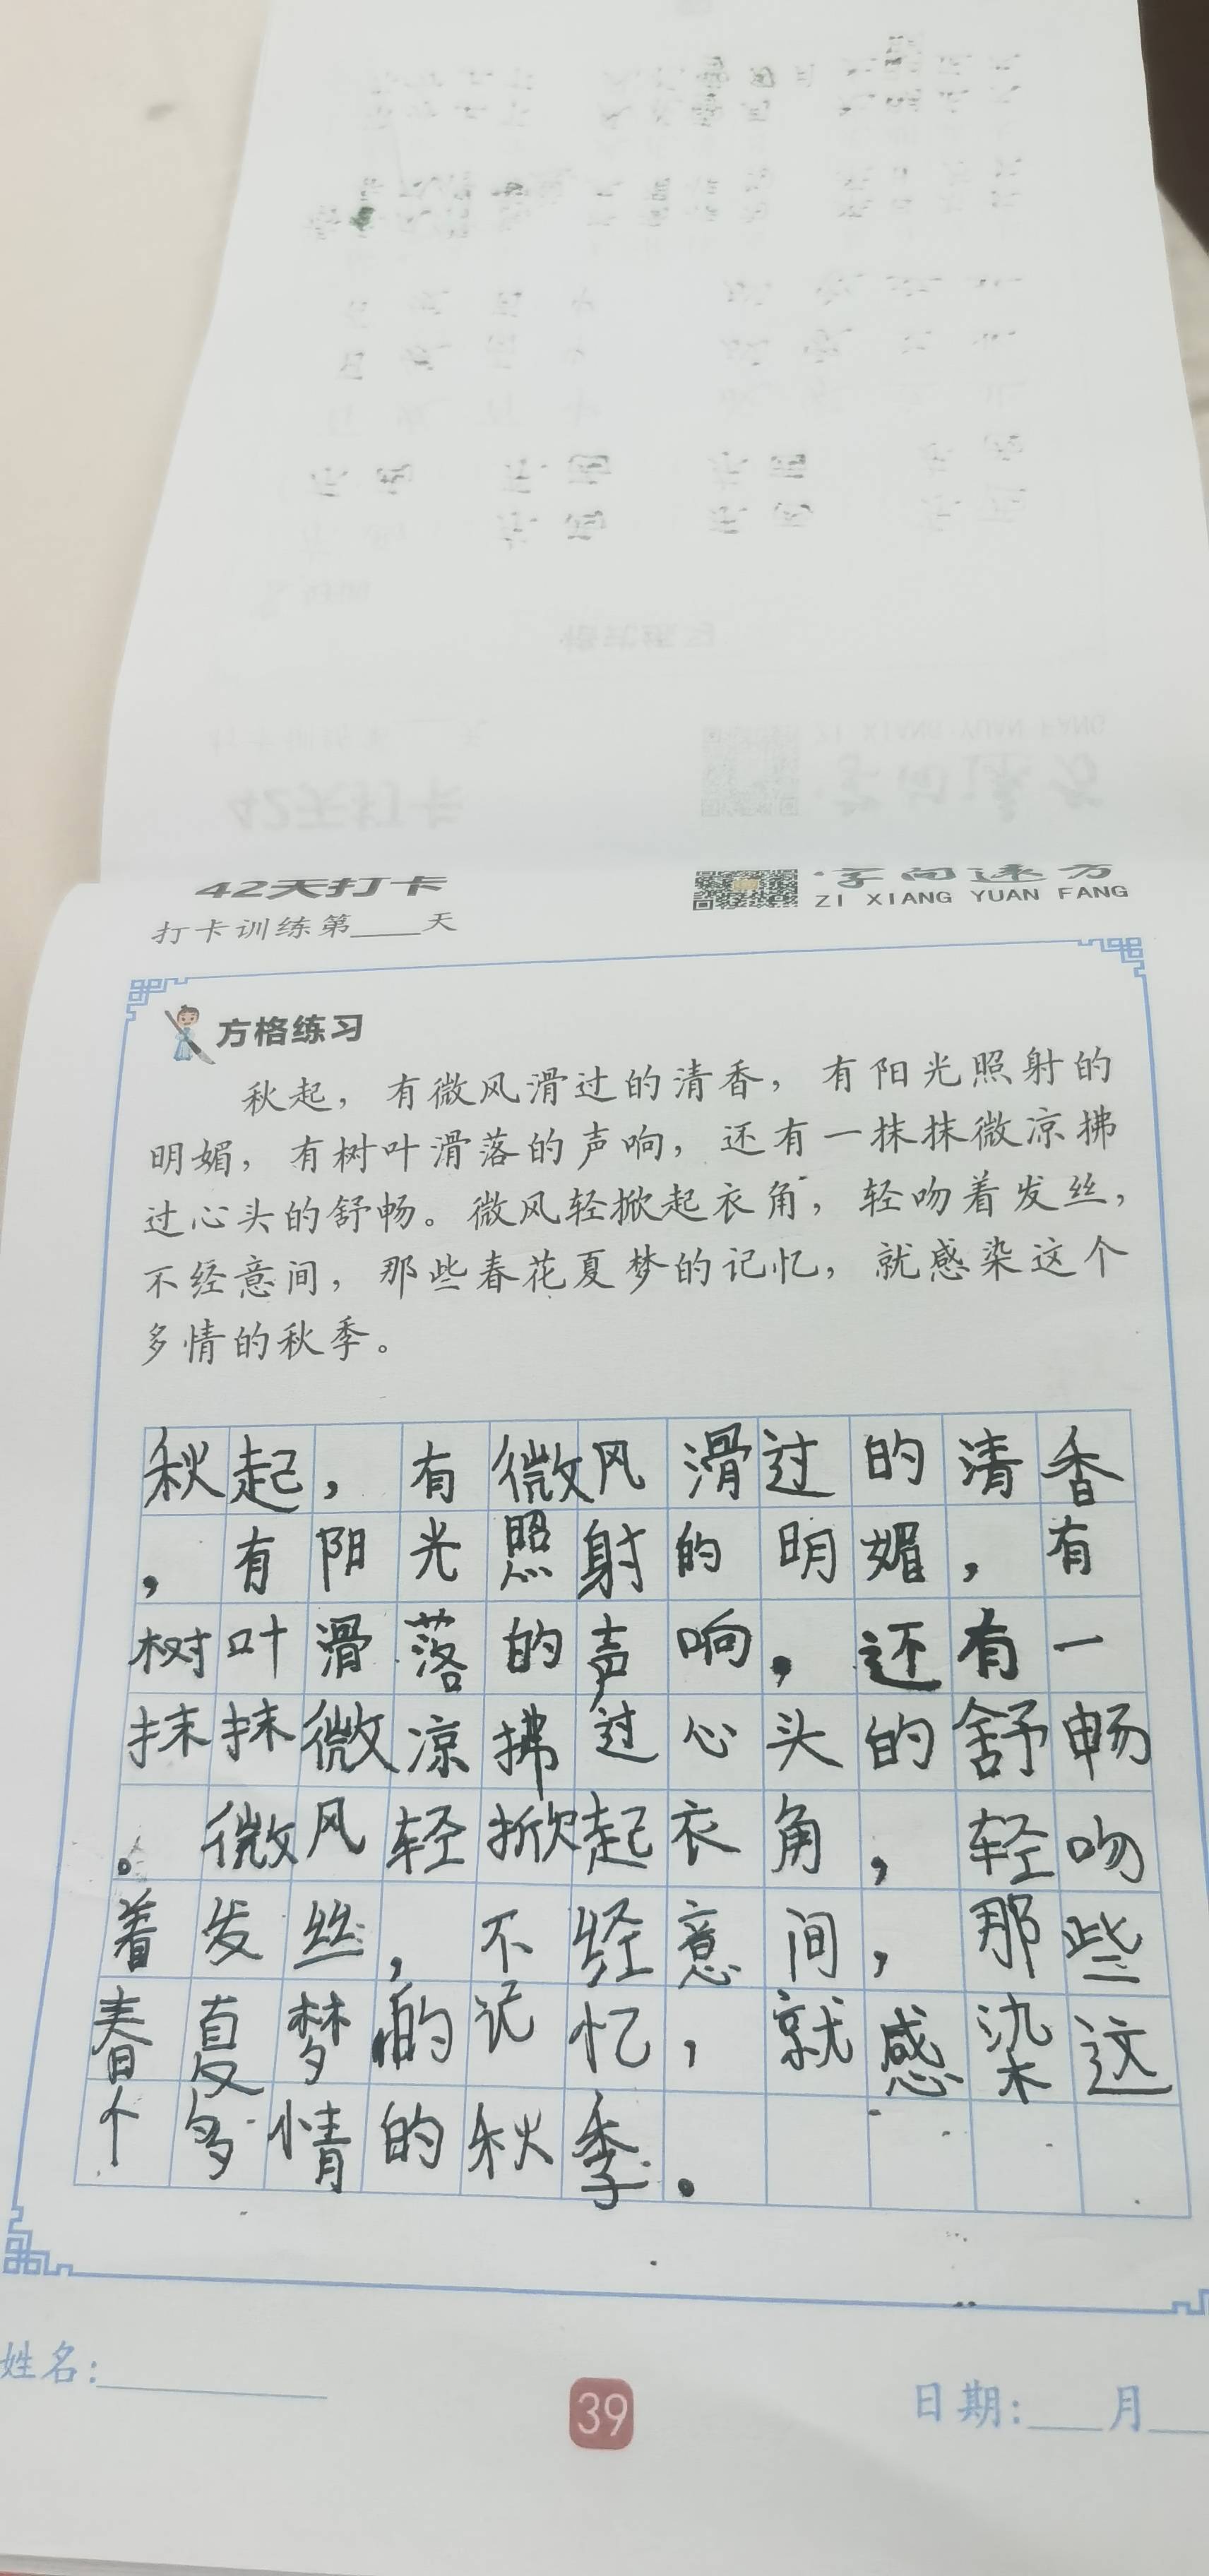 42天打卡
字向远方
ZI XIANG YUAN FANG
打卡训练第____天
方格练习
秋起，有微风滑过的清香，有阳光照射的
明媚，有树叶滑落的声响，还有一抹抹微凉拂
过心头的舒畅。微风轻掀起衣角，轻吻着发丝，
不经意间，那些春花夏梦的记忆，就感染这个
多情的秋季。
秋起，有微风滑过的清香
，有阳光照射的明媚，有
树叶滑落的声响，还有一
抹抹微凉拂过心头的舒畅
。微风轻掀起衣角，轻吻
着发丝，不经意间，那些
春夏梦的记忆，就感染这
个多情的秋季。
姓名:
39
日期:___月